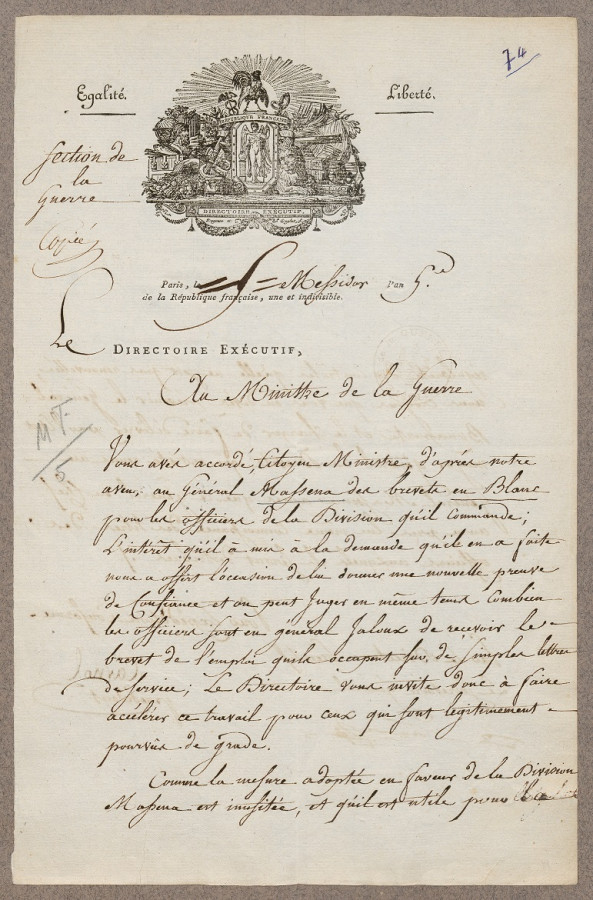 74
Egalité.
Liberté.
RÉPUBLIQUE FRANÇAISE
DIRECTOIRE EXÉCUTIF.
Section de
la
Guerre
Copiée
Paris, le 5 Messidor l'an 5.e
de la République française, une et indivisible.
Le DIRECTOIRE EXÉCUTIF,
Au Ministre de la Guerre
MF
5
Vous avés accordé, Citoyen Ministre, d'après notre
aveu, au Général Massena des brevets en Blanc
pour les officiers de la Division qu'il Commande;
L'intérêt qu'il à mis à la demande qu'il en a faite
nous a offert l'occasion de lui donner une nouvelle preuve
de Confiance et on peut Juger en même tems Combien
les officiers sont en général Jaloux de recevoir le
brevet de l'emploi qu'ils occupent sur de simples lettres
de service; Le Directoire vous invite donc à faire
accélérer ce travail pour ceux qui sont légitimement
pourvûs de grade.
Comme la mesure adoptée en faveur de la Division
Massena est inusitée, et qu'il est utile pour